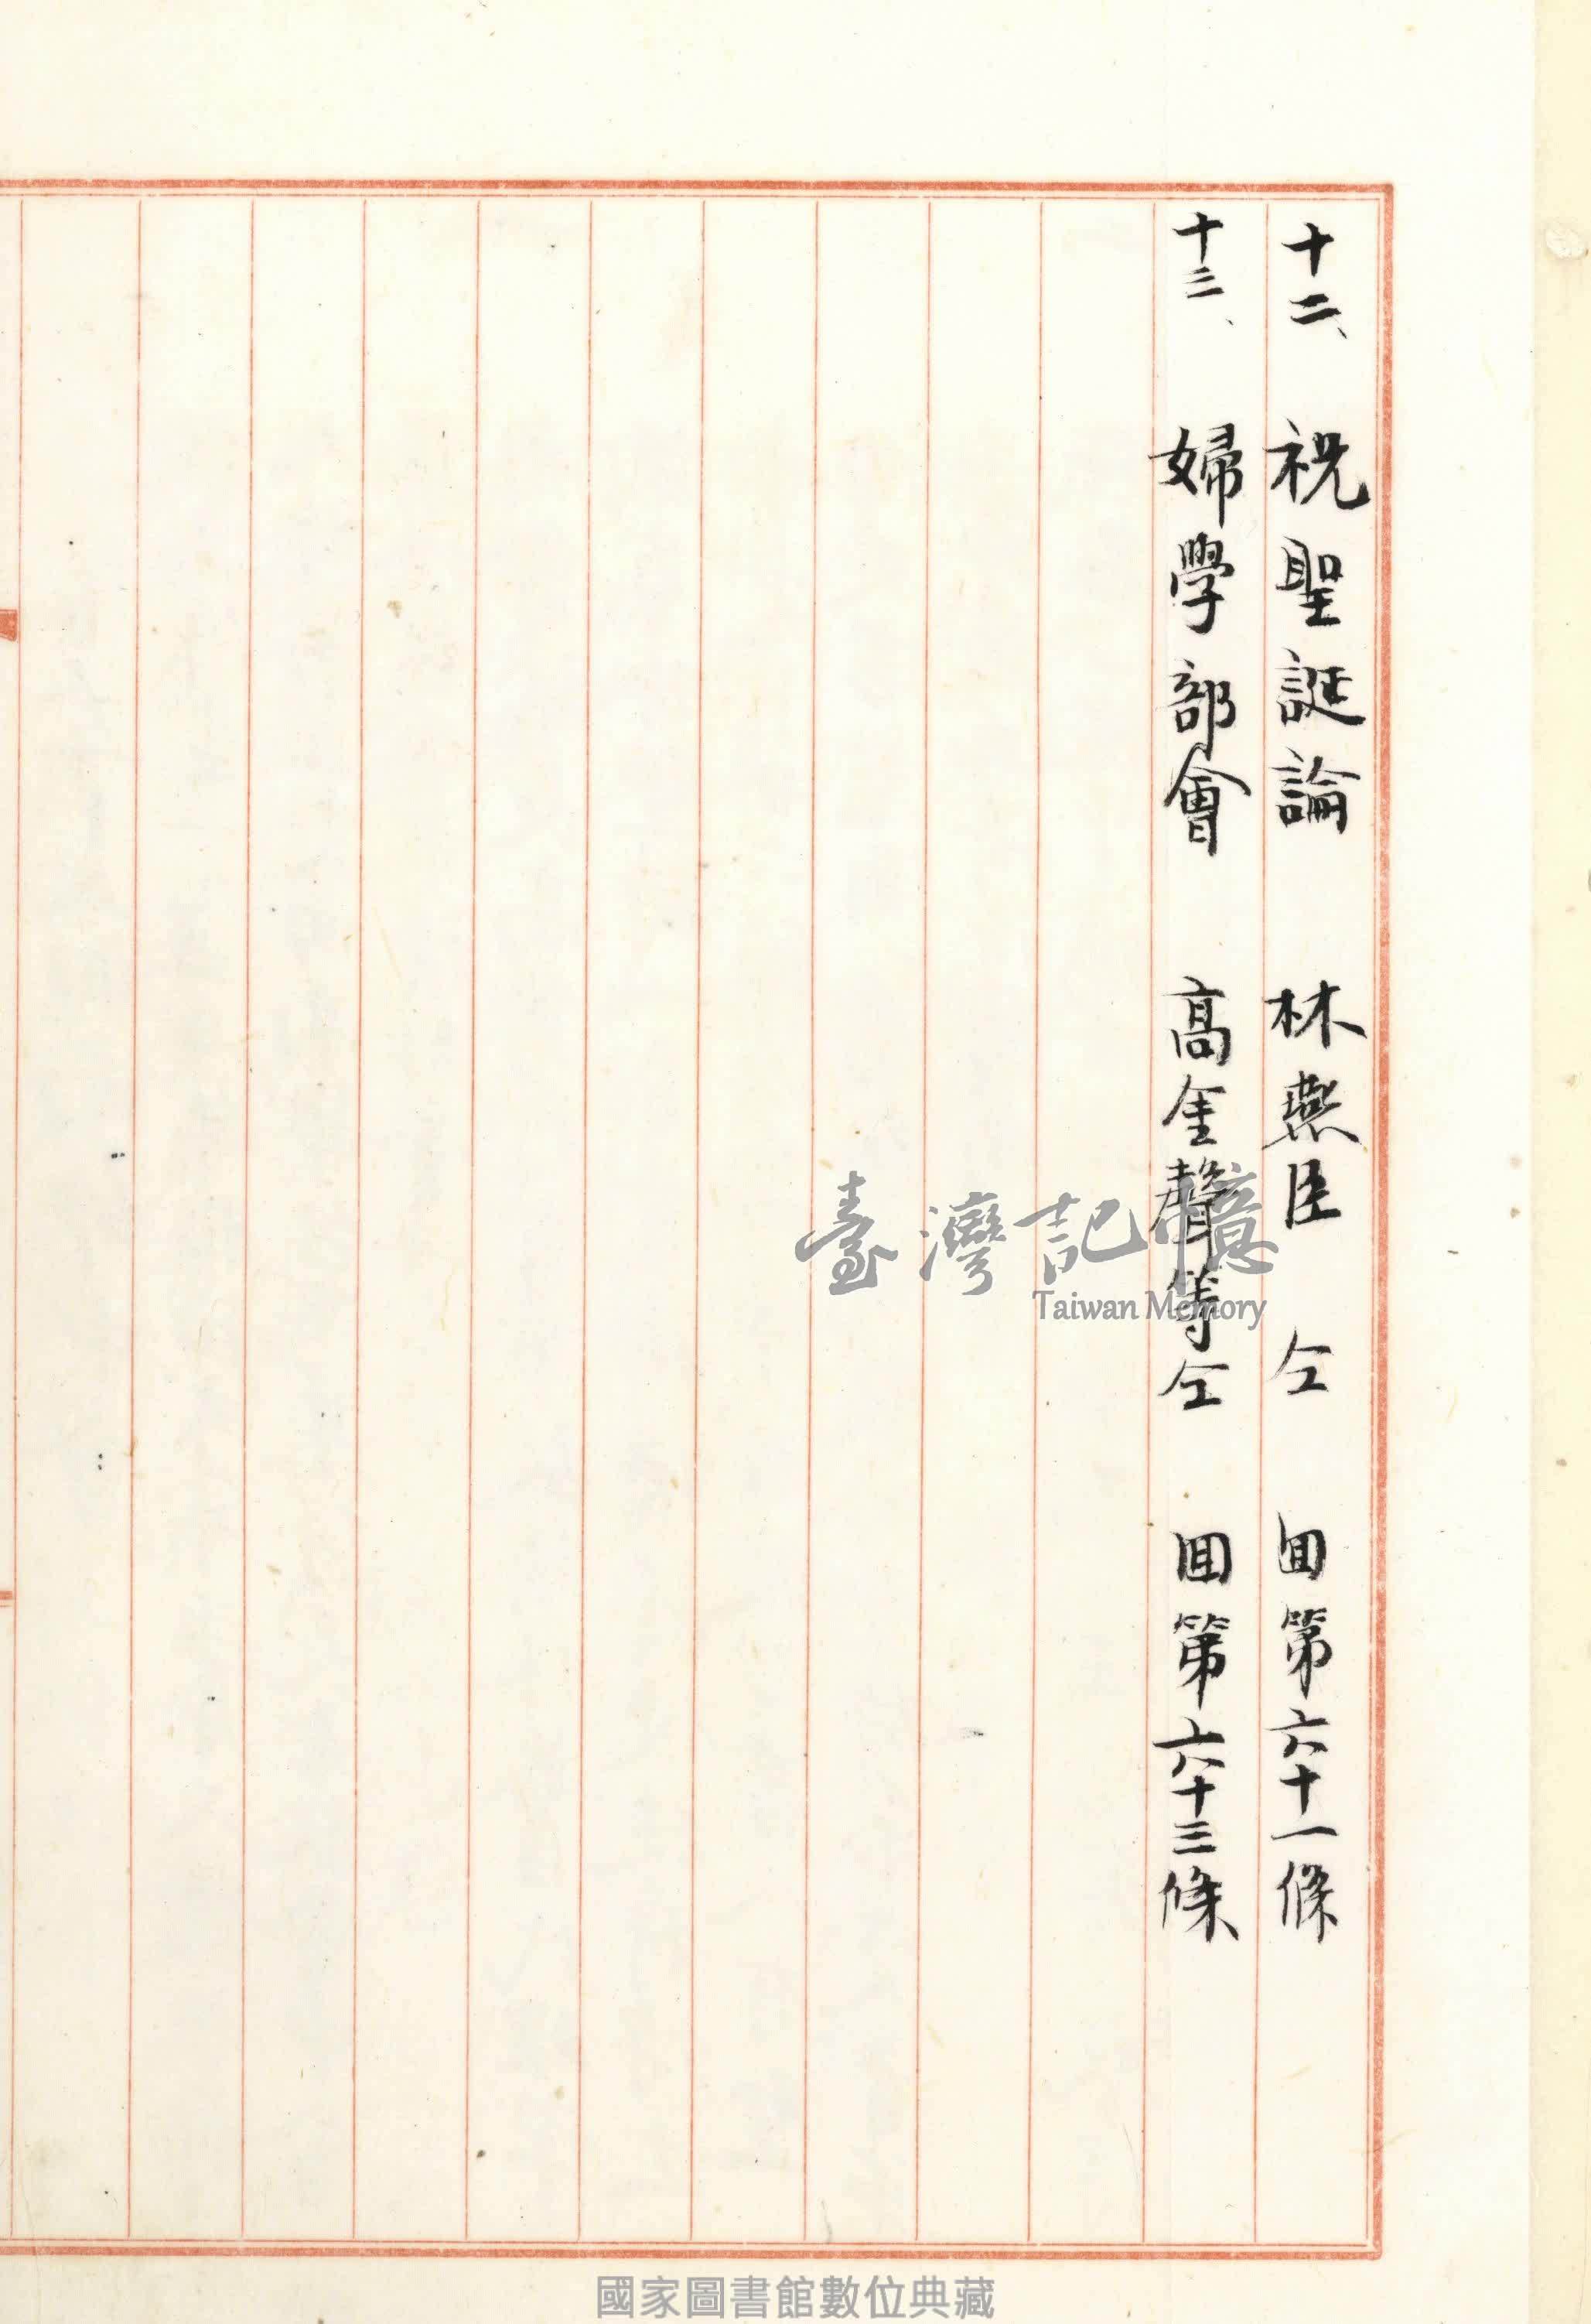 十二、祝聖誕論 林燕臣 仝 囬第六十一條
十三、婦學部會 高金聲等仝 囬第六十三條
臺灣記憶
Taiwan Memory
國家圖書館數位典藏